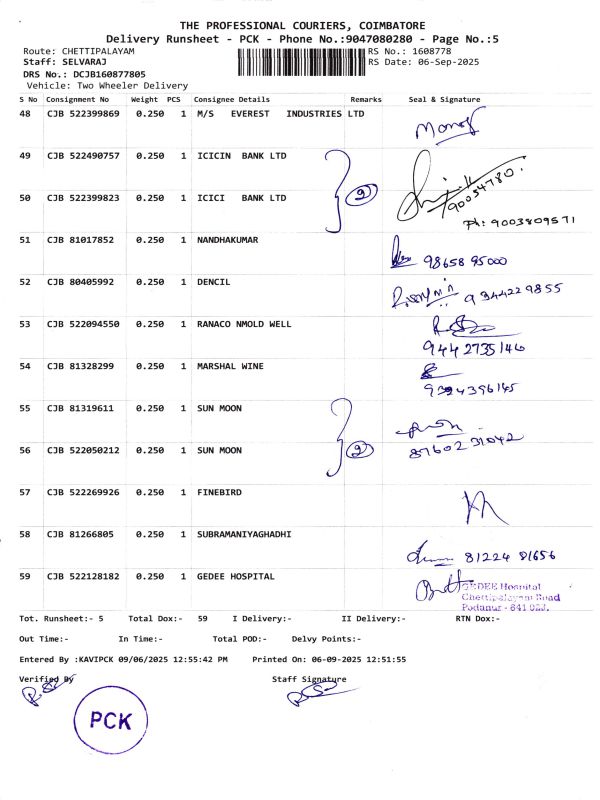 THE PROFESSIONAL COURIERS, COIMBATORE
Delivery Runsheet - PCK - Phone No.:9047080280 - Page No.:5
Route: CHETTIPALAYAM RS No.: 1608778
Staff: SELVARAJ RS Date: 06-Sep-2025
DRS No.: DCJB160877805
Vehicle: Two Wheeler Delivery
S No Consignment No Weight PCS Consignee Details Remarks Seal & Signature
48 CJB 522399869 0.250 1 M/S EVEREST INDUSTRIES LTD
49 CJB 522490757 0.250 1 ICICIN BANK LTD
50 CJB 522399823 0.250 1 ICICI BANK LTD 2
Ph: 9003809571
51 CJB 81017852 0.250 1 NANDHAKUMAR
98658 95000
52 CJB 80405992 0.250 1 DENCIL
9344229855
53 CJB 522094550 0.250 1 RANACO NMOLD WELL
9442735146
54 CJB 81328299 0.250 1 MARSHAL WINE
55 CJB 81319611 0.250 1 SUN MOON
56 CJB 522050212 0.250 1 SUN MOON 2
87602 31042
57 CJB 522269926 0.250 1 FINEBIRD
58 CJB 81266805 0.250 1 SUBRAMANIYAGHADHI
81224 81656
59 CJB 522128182 0.250 1 GEDEE HOSPITAL
GEDEE Hospital
Chettipalayam Road
Podanur - 641 023.
Tot. Runsheet:- 5 Total Dox:- 59 I Delivery:- II Delivery:- RTN Dox:-
Out Time:- In Time:- Total POD:- Delvy Points:-
Entered By :KAVIPCK 09/06/2025 12:55:42 PM Printed On: 06-09-2025 12:51:55
Verified By Staff Signature
PCK